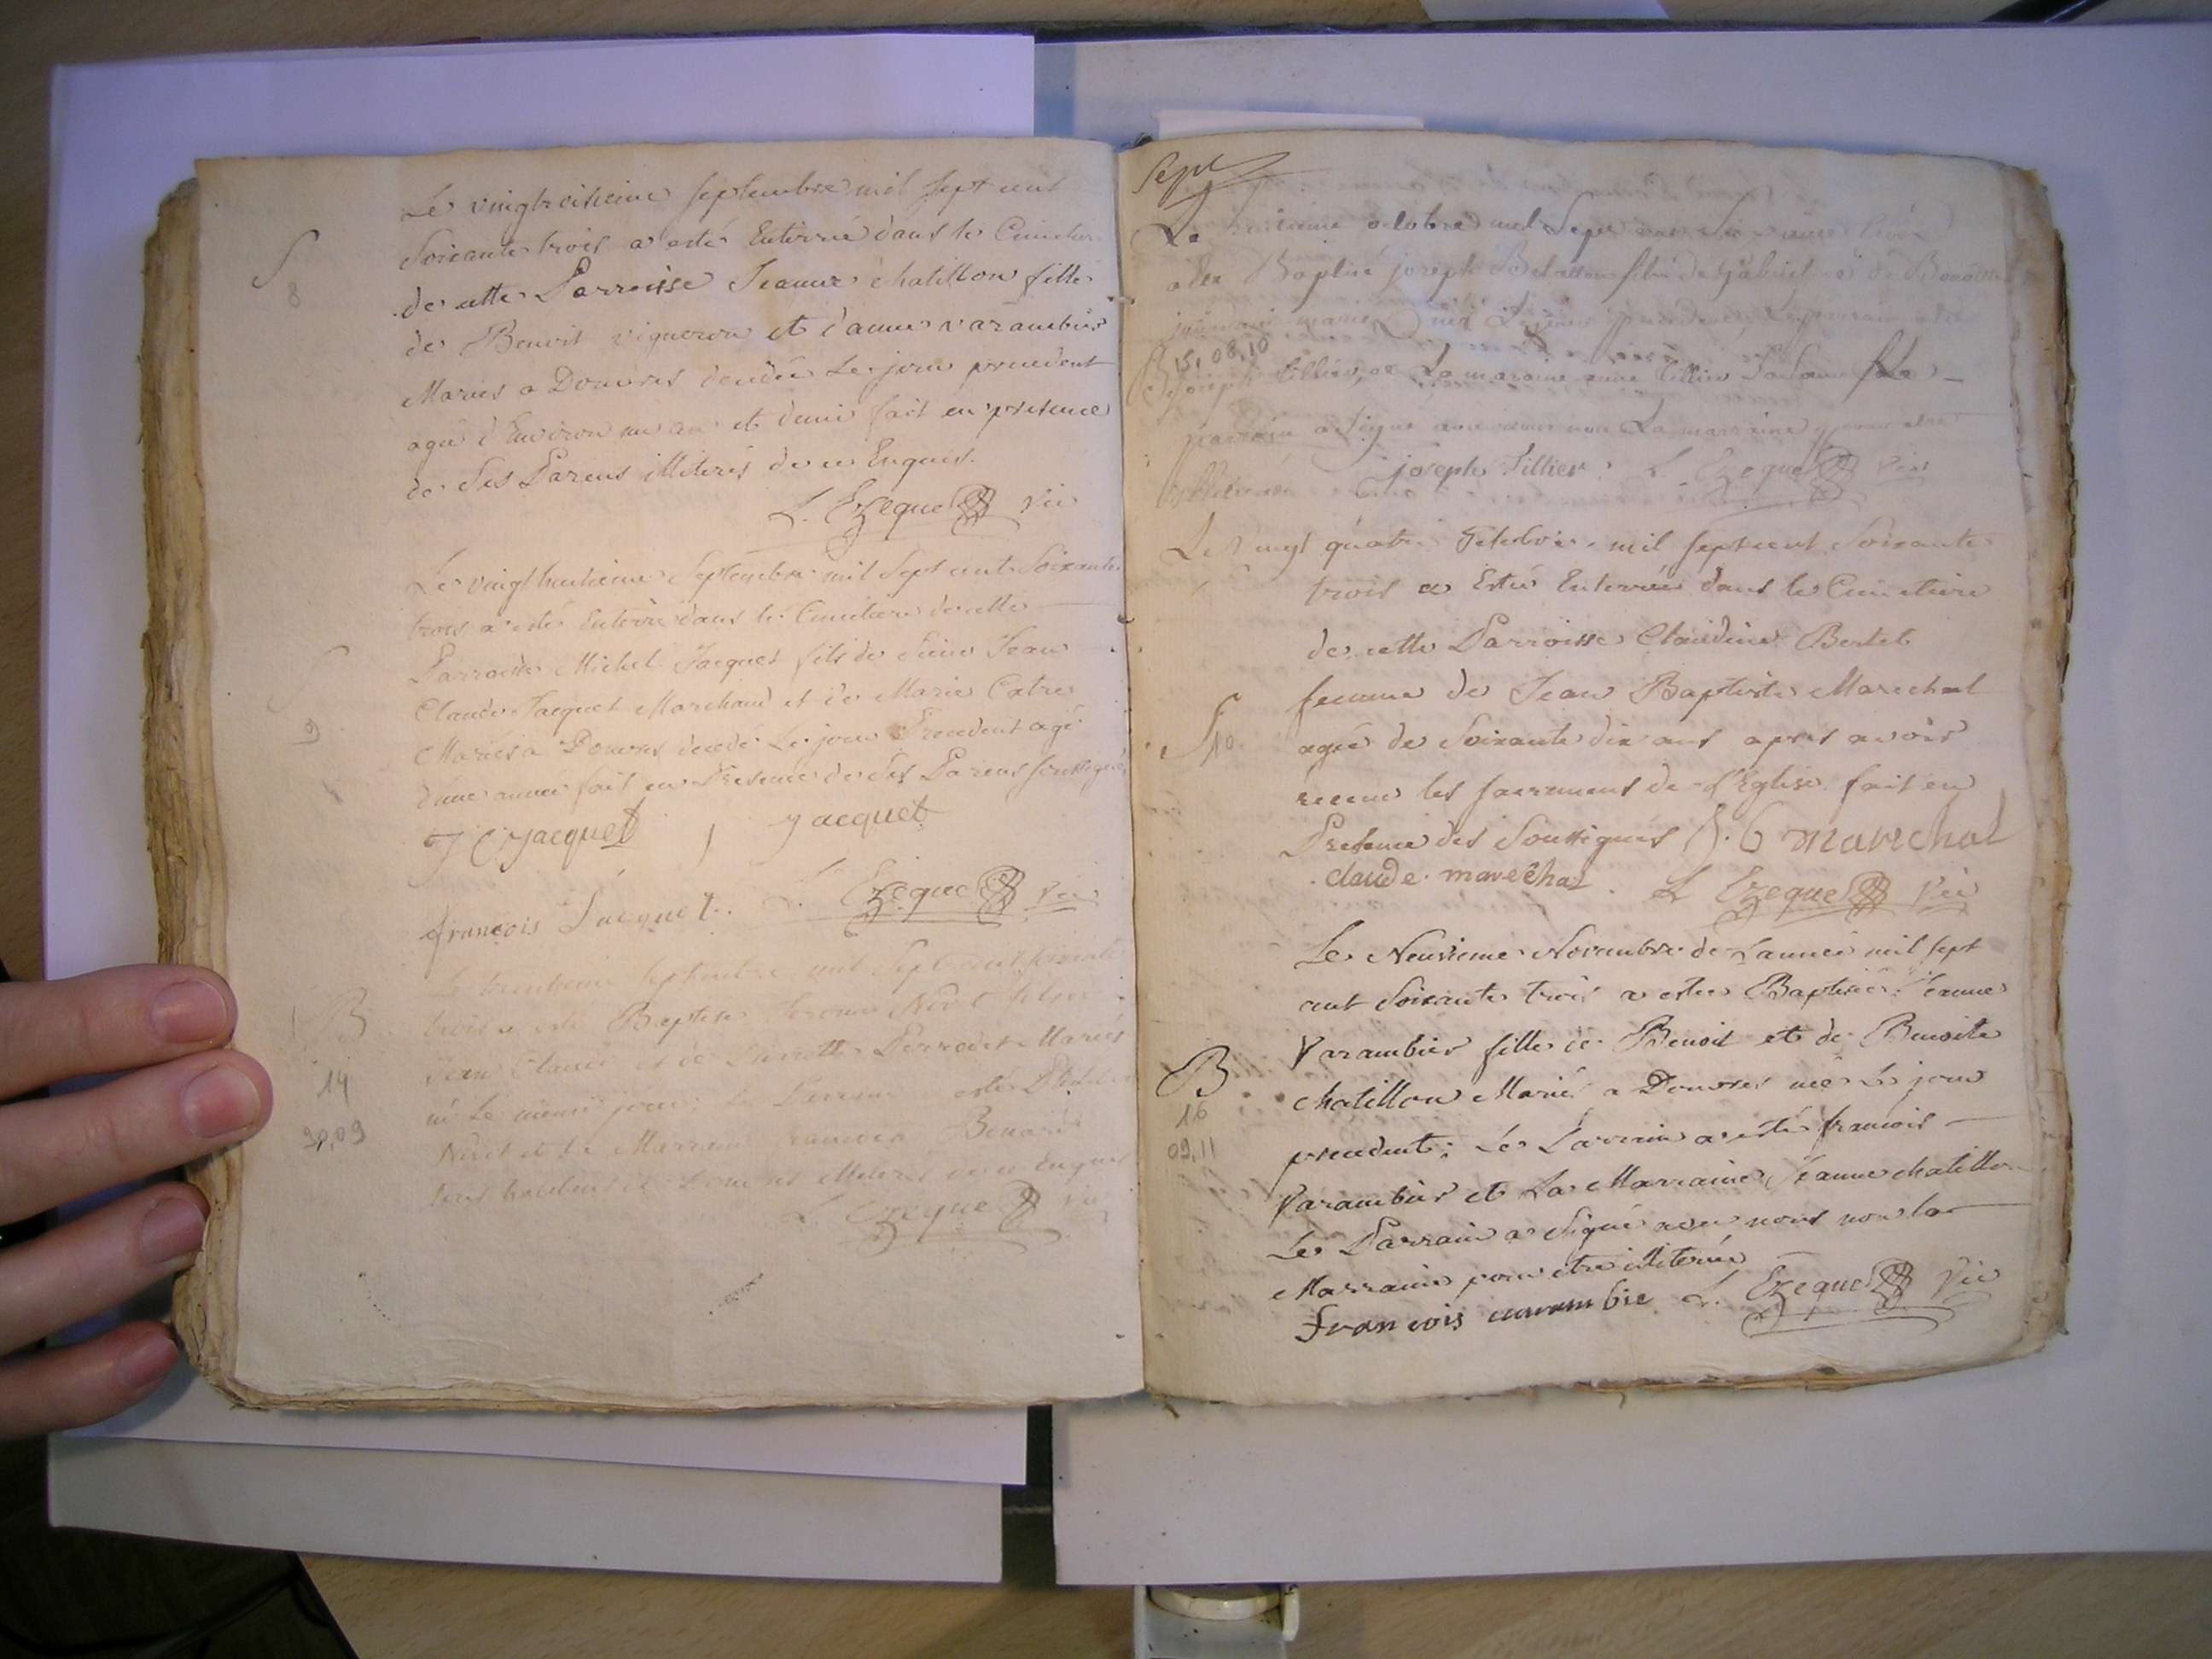 Le vingtroisieme septembre mil sept cent
S
8
Soixante trois a esté Enterrée dans le Cimetiere
de cette Parroisse Jeanne chatillon fille
de Benoit vigneron et d'anne varambier
Mariés a Douvres decedée Le jour precedent
agée d'Environ un an et demi fait en presence
de Ses Parens illiterés de ce Enquis.
L. Ezeque Vic
Le vingt huitieme Septembre mil Sept cent Soixante
trois a esté Enterré dans le Cimetiere de cette
Parroisse Michel Jacquet fils de Sieur Jean
9
Claude Jacquet Marchand et de Marie Catre
Mariés a Douvres decedé Le jour Precedent agé
d'une année fait en Presence de Ses Parens soussignés
J C Jacquet Jacquet
françois Jacquet. L. Ezeque Vic
Le trentieme septembre mil Sept cent soixante
B
trois a esté Baptisé Niret fils de
14
Jean Claude et de Pierrette Perrodet Mariés
30,09
né Le meme jour Le Parrain a esté
Niret et La Marraine Benard
tous habitans de Douvres illiterés de ce Enquis
L. Ezeque Vic
Sept
Le octobre mil Sept cent Soixante trois
a été Baptisé joseph fils de gabriel et de Benoitte
mariés né Le jour precedent Le parrain a été
B 15, 08,10
joseph tillier, et La maraine anne tillier Le
parrain a Signé avec nous non La marraine pour etre
illiterée joseph Tillier L. Ezeque Vic
Le vingt quatre octobre mil sept cent Soixante
trois a Esté Enterrée dans le Cimetiere
de cette Parroisse Claudine Bertet
femme de Jean Baptiste Marechal
S 10
agée de Soixante dix ans apres avoir
reçeue les sacremens de l'Eglise fait en
Presence des Soussignés J. B marechal
claude marechal L Ezeque Vic
Le Neuvieme Novembre de L'année mil sept
cent Soixante trois a estée Baptisée Jeanne
Varambier fille de Benoit et de Benoite
B
16
09,11
chatillon Mariés a Douvres née Le jour
precedent; Le Parrain a esté francois
Varambier et La Marraine Jeanne chatillon
Le Parrain a Signé avec nous non la
Marraine pour etre illiterée
francois varambie L. Ezeque Vic